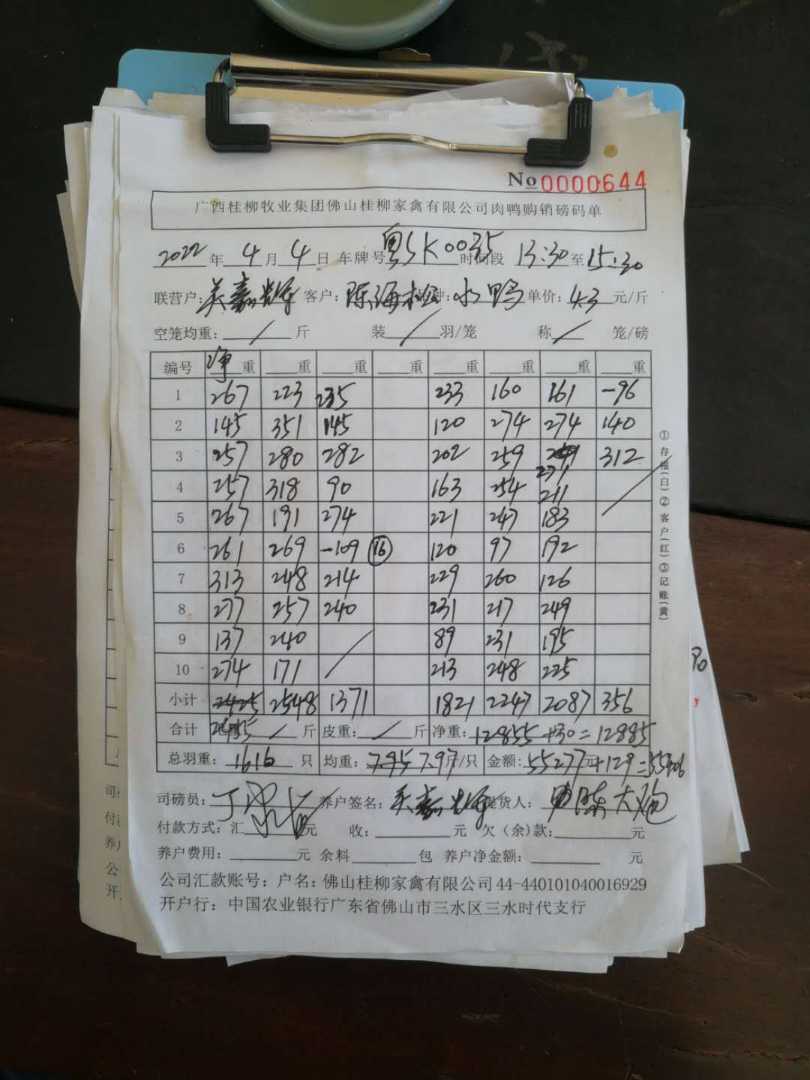 No 0000644
广西桂柳牧业集团佛山桂柳家禽有限公司肉鸭购销磅码单
2022 年 4 月 4 日 车牌号 粤SK0035 时间段 13:30 至 15:30
联营户: 嘉辉 客户: 陈海 水鸭 单价: 4.3 元/斤
空笼均重: / 斤 装 / 羽/笼 称 / 笼/磅
编号 净重 重 重 重 重 重 重 重
1 267 223 235 233 160 161 -96
2 145 351 145 120 274 274 140
3 257 280 282 202 259 271 312
4 257 318 90 163 254 211
5 267 191 274 221 247 183 /
6 261 269 -109 16 120 97 192
7 313 248 214 229 260 126
8 277 257 240 231 217 249
9 137 240 / 89 231 195
10 274 171 213 248 225
小计 2425 2548 1371 1821 2247 2087 356
合计 2455 / 斤 皮重: / 斤 净重: 12855+30=12885
总羽重: 1616 只 均重: 7.95 7.97 /只 金额: 55277元+129=55406
司磅员: 养户签名: 嘉辉 提货人: 陈大
付款方式: 汇 元 收: 元 欠(余)款: 元
养户费用: 元 余料 包 养户净金额: 元
公司汇款账号: 户名: 佛山桂柳家禽有限公司 44-440101040016929
开户行: 中国农业银行广东省佛山市三水区三水时代支行
①存根(白)②客户(红)③记账(黄)